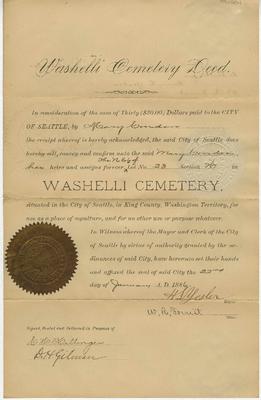 Washelli Cemetery Deed.
In consideration of the sum of Thirty ($30.00) Dollars paid to the CITY
OF SEATTLE, by Mary Condon
the receipt whereof is hereby acknowledged, the said City of Seattle does
hereby sell, convey and confirm unto the said Mary Condon
her heirs and assigns forever, Lot No. 23 Section in
WASHELLI CEMETERY,
situated in the City of Seattle, in King County, Washington Territory, for
use as a place of sepulture, and for no other use or purpose whatever.
In Witness whereof the Mayor and Clerk of the City
of Seattle by virtue of authority granted by the or-
dinances of said City, have hereunto set their hands
and affixed the seal of said City the 23rd
day of January A. D. 1886
H. L. Yesler
W. R.
Signed, Sealed and Delivered in Presence of
D. H. Gilman